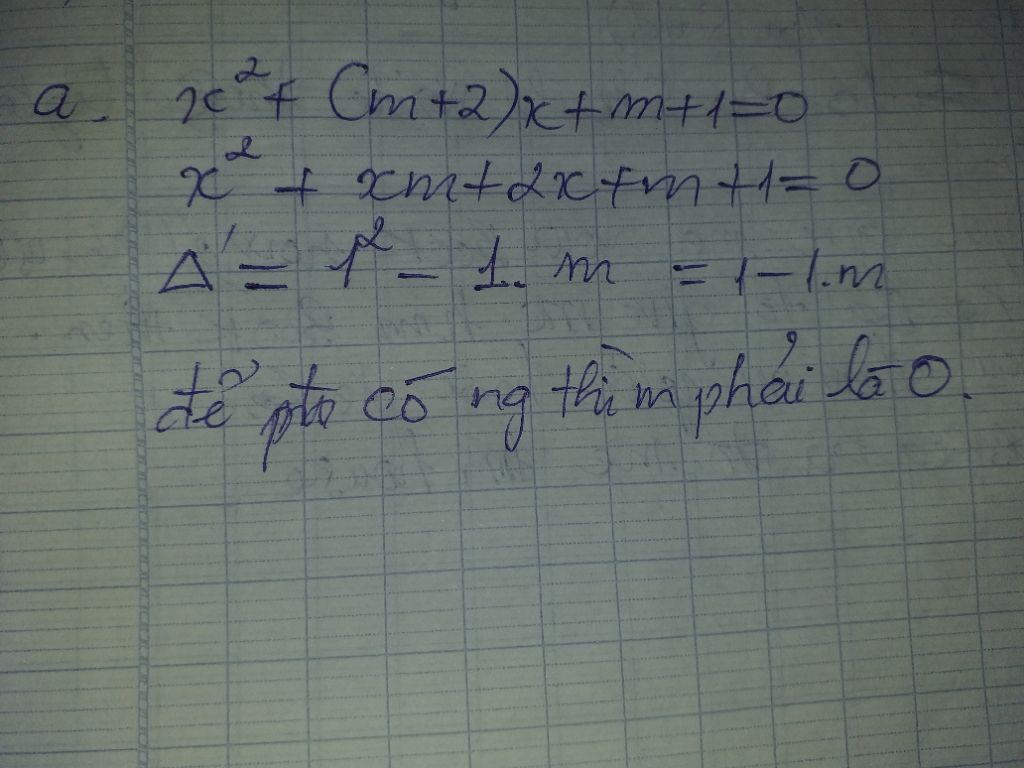 a. x² + (m+2)x+m+1=0
x² + xm+2x+m+1=0
Δ' = 1² - 1. m = 1-1.m
để pto có ng thì m phải là 0.